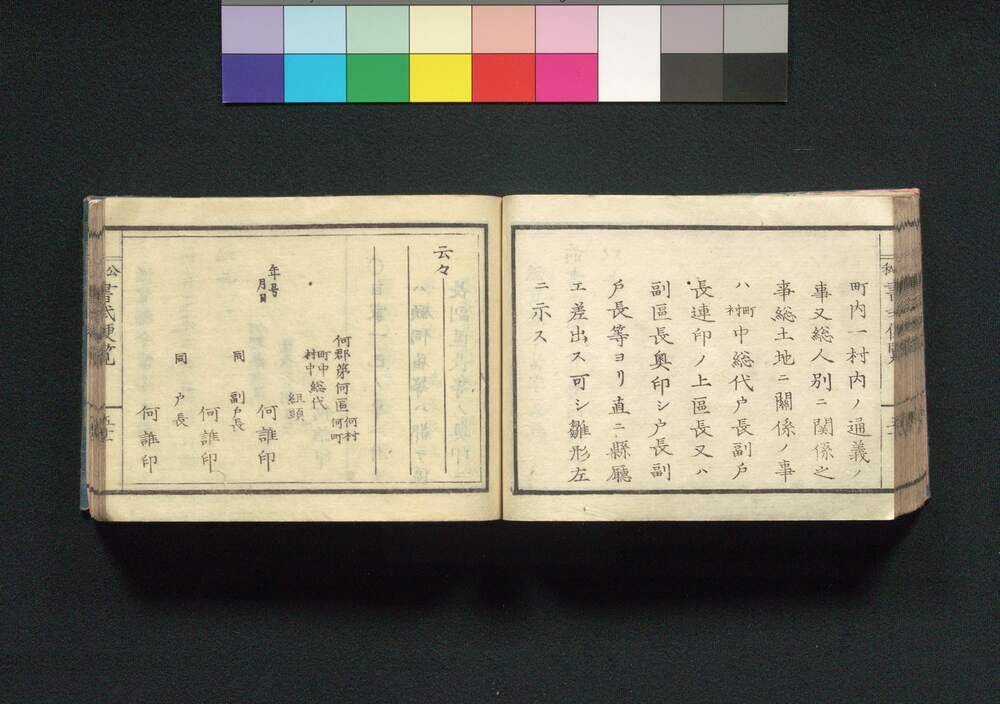 町内一村内ノ通義ノ
事又総人別ニ関係之
事総土地ニ關係ノ事
ハ町村中総代戸長副戸
長連印ノ上區長又ハ
副區長奥印シ戸長副
戸長等ヨリ直ニ縣廳
エ差出ス可シ雛形左
ニ示ス
云々
年号
月日
何郡第何區何村何町
町中村中総代
組頭
何誰印
同 副戸長
何誰印
同 戸長
何誰印
公書式便覧